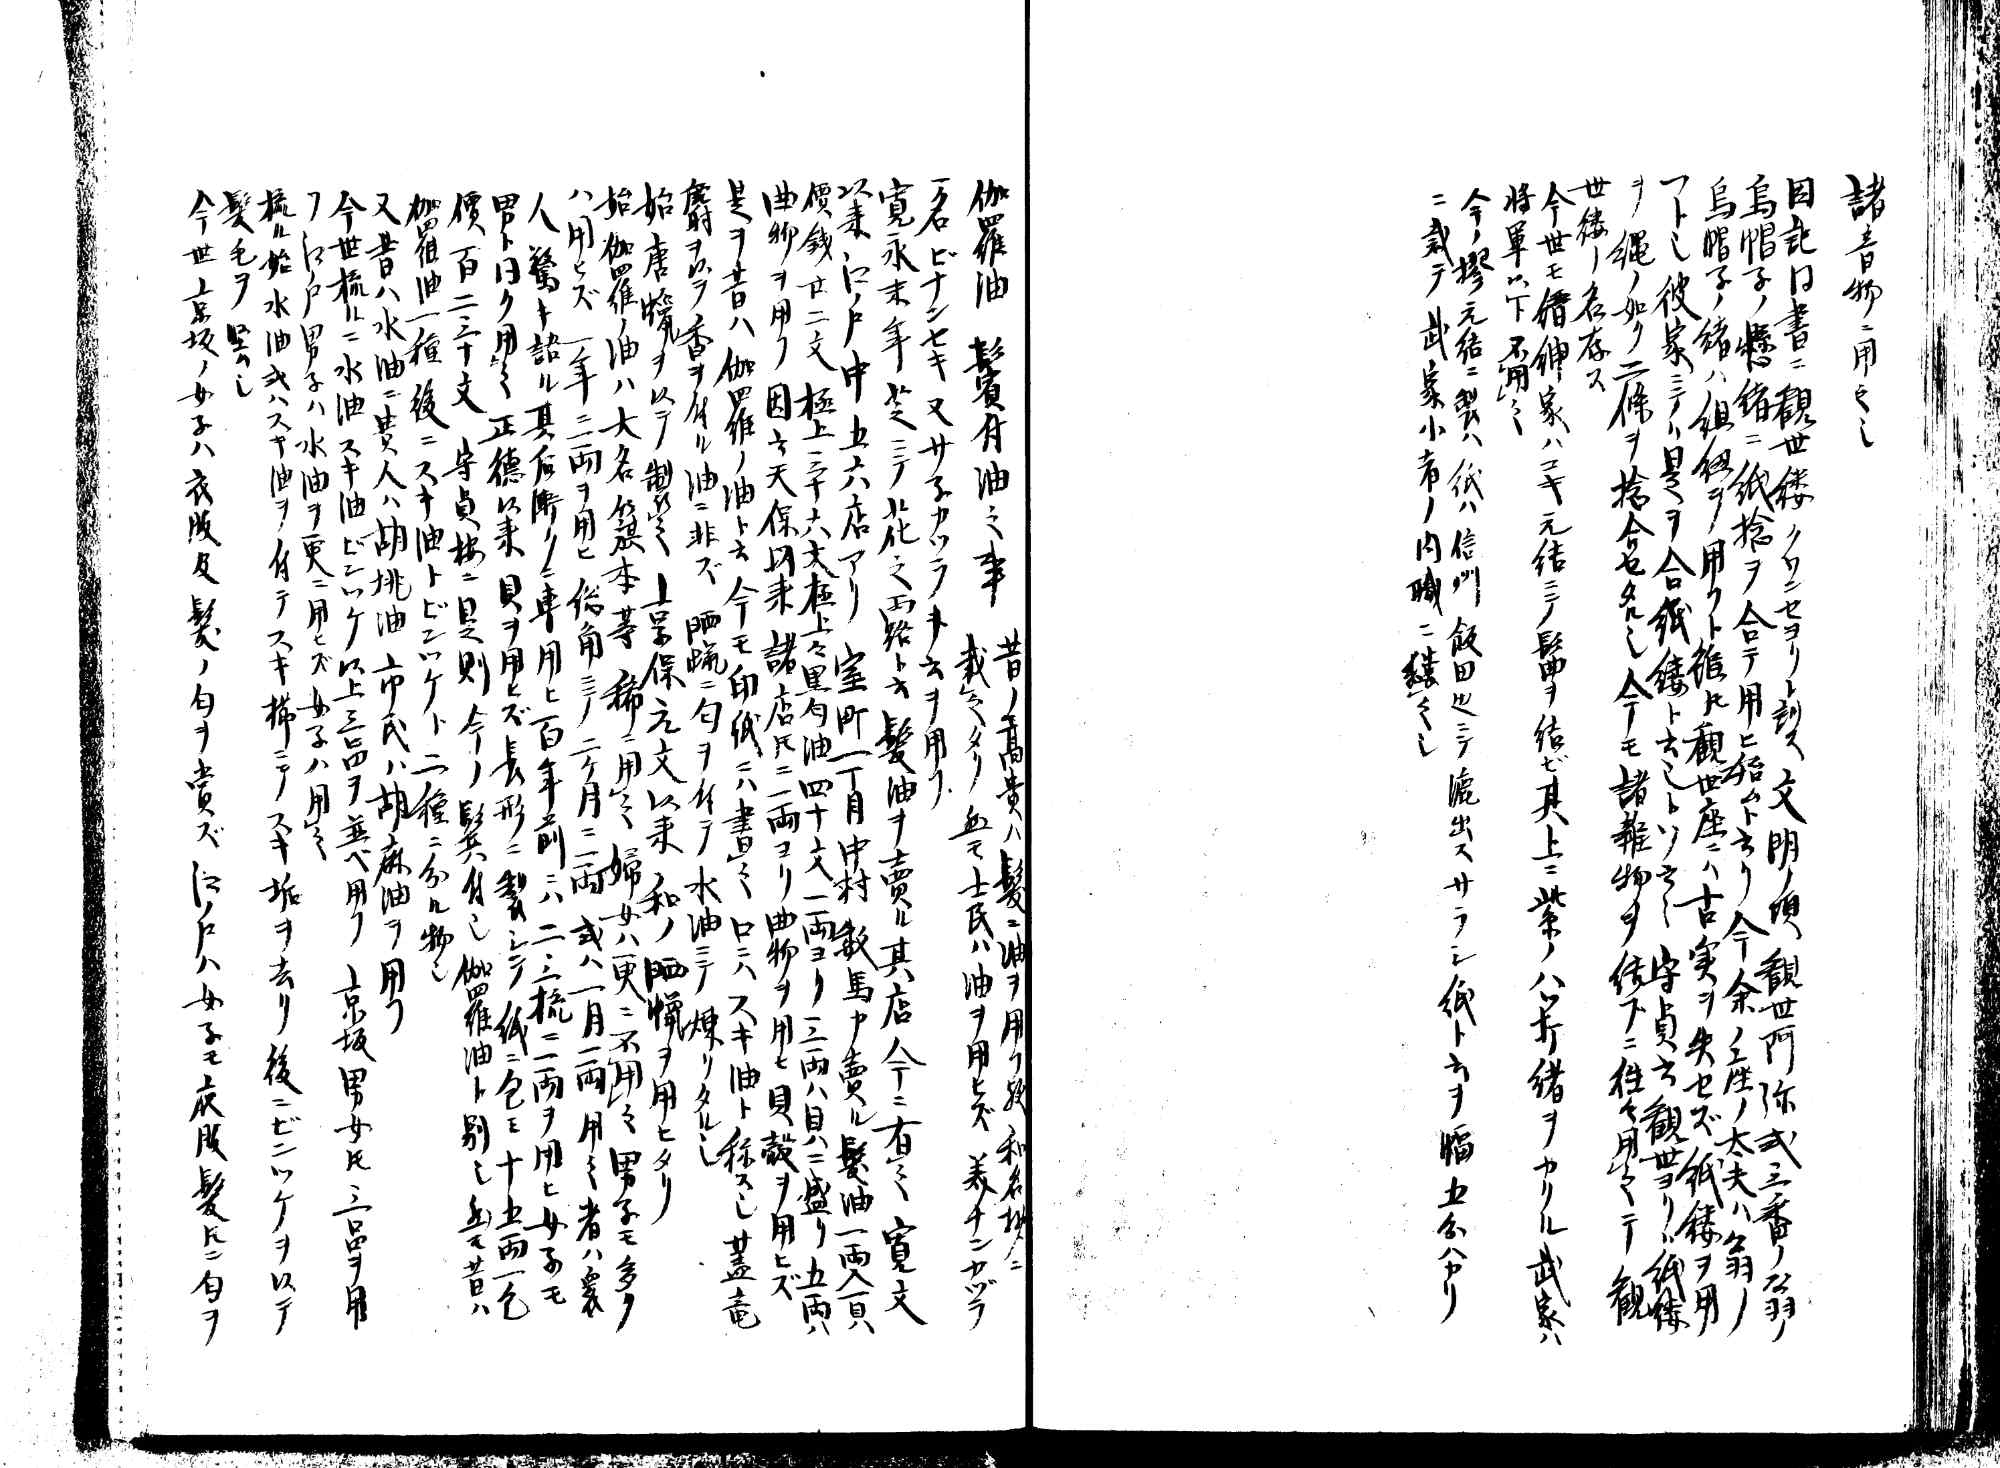 諸音物ニ用之也
因記同書ニ観世縷クワンゼヨリト訓ス文明ノ頃観世阿弥式三番ノ翁ノ
烏帽子ノ懸緒ニ紙捻ヲ合テ用ヒ始ムト云リ今余ノ座ノ太夫ハ翁ノ
烏帽子ノ緒ハ組紐ヲ用フト雖𪜈観世座ニハ古実ヲ失セズ紙縷ヲ用
フト也彼家ニテハ是ヲ合紙縷ト云也トソ云々守貞云観世ヨリハ紙縷
ヲ縄ノ如ク二條ヲ捻合セタル也今モ諸雑物ヲ結フニ往々用之テ観
世縷ノ名存ス
今世モ縉紳家ハコキ元結ニテ髷ヲ結ビ其上ニ紫ノ八ツ打緒ヲカクル武家ハ
将軍以下不用之
今ノ摎元結ニ製ハ紙ハ信州飯田辺ニテ漉出スサラシ紙ト云ヲ幅五分ハカリ
ニ裁テ武家小者ノ内職ニ縷之也
伽羅油 鬢付油之事 昔ノ高貴ハ髪ニ油ヲ用フ故和名抄ニ
載之タリ𪜈モ士民ハ油ヲ用ヒズ美ナンカヅラ
一名ビナンセキ又サネカヅラトモ云ヲ用フ
寛永末年芝ニテ花之露ト云髪油ヲ賣ル其店今ニ有之寛文
以来江戸中五六店アリ室町一丁目中村数馬ガ賣ル髪油一両入一貝ハ
價銭廿二文極上三十六文極上々黒匂油四十文一両ヨリ三両ハ貝ニ盛リ五両ハ
曲物ヲ用フ因云天保以来諸店𪜈二両ヨリ曲物ヲ用ヒ貝殻ヲ用ヒズ
是ヲ昔ハ伽羅ノ油ト云今モ印紙ニハ書之口ニハスキ油ト称ス也蓋竜
麝ヲ以テ香ヲ付ル油ニ非ズ晒蝋ニ匂ヲ付テ水油ニテ煉リタル也
始唐蠟ヲ以テ制之享保元文以来ノ和ノ晒蠟ヲ用ヒタリ
始伽羅ノ油ハ大名籏本等稀ニ用之婦女ハ更ニ不用之男子モ多ク
ハ用ヒズ一年ニ二両ヲ用ヒ総角ニテ二ケ月ニ両或ハ一月一両用之者ハ衆
人驚キ語ル其后漸々ニ専用ヒ百年前ニハ二三梳ニ一両ヲ用ヒ女子モ
男ト同ク用之正徳以来貝ヲ用ヒズ長形ニ製シテ紙ニ包ミ十五両一包
價百二三十文守貞按ニ是則今ノ鬢付也伽羅油ト別也𪜈モ昔ハ
伽羅油一種後ニスキ油トビンツケト二種ニ分ル物也
又昔ハ水油ニ貴人ハ胡桃油市民ハ胡麻油ヲ用フ
今世梳ルニ水油スキ油ビンツケ以上三品ヲ並ヘ用フ京坂男女𪜈三品ヲ用
フ江戸男子ハ水油ヲ更ニ用ヒズ女子ハ用之
梳ル始水油或ハスキ油ヲ付テスキ櫛ニテスキ垢ヲ去リ後ニビンツケヲ以テ
髪毛ヲ堅ム也
今世京坂ノ女子ハ衣服及髪ノ匂ヲ賞ズ江戸ハ女子モ衣服髪𪜈ニ匂ヲ